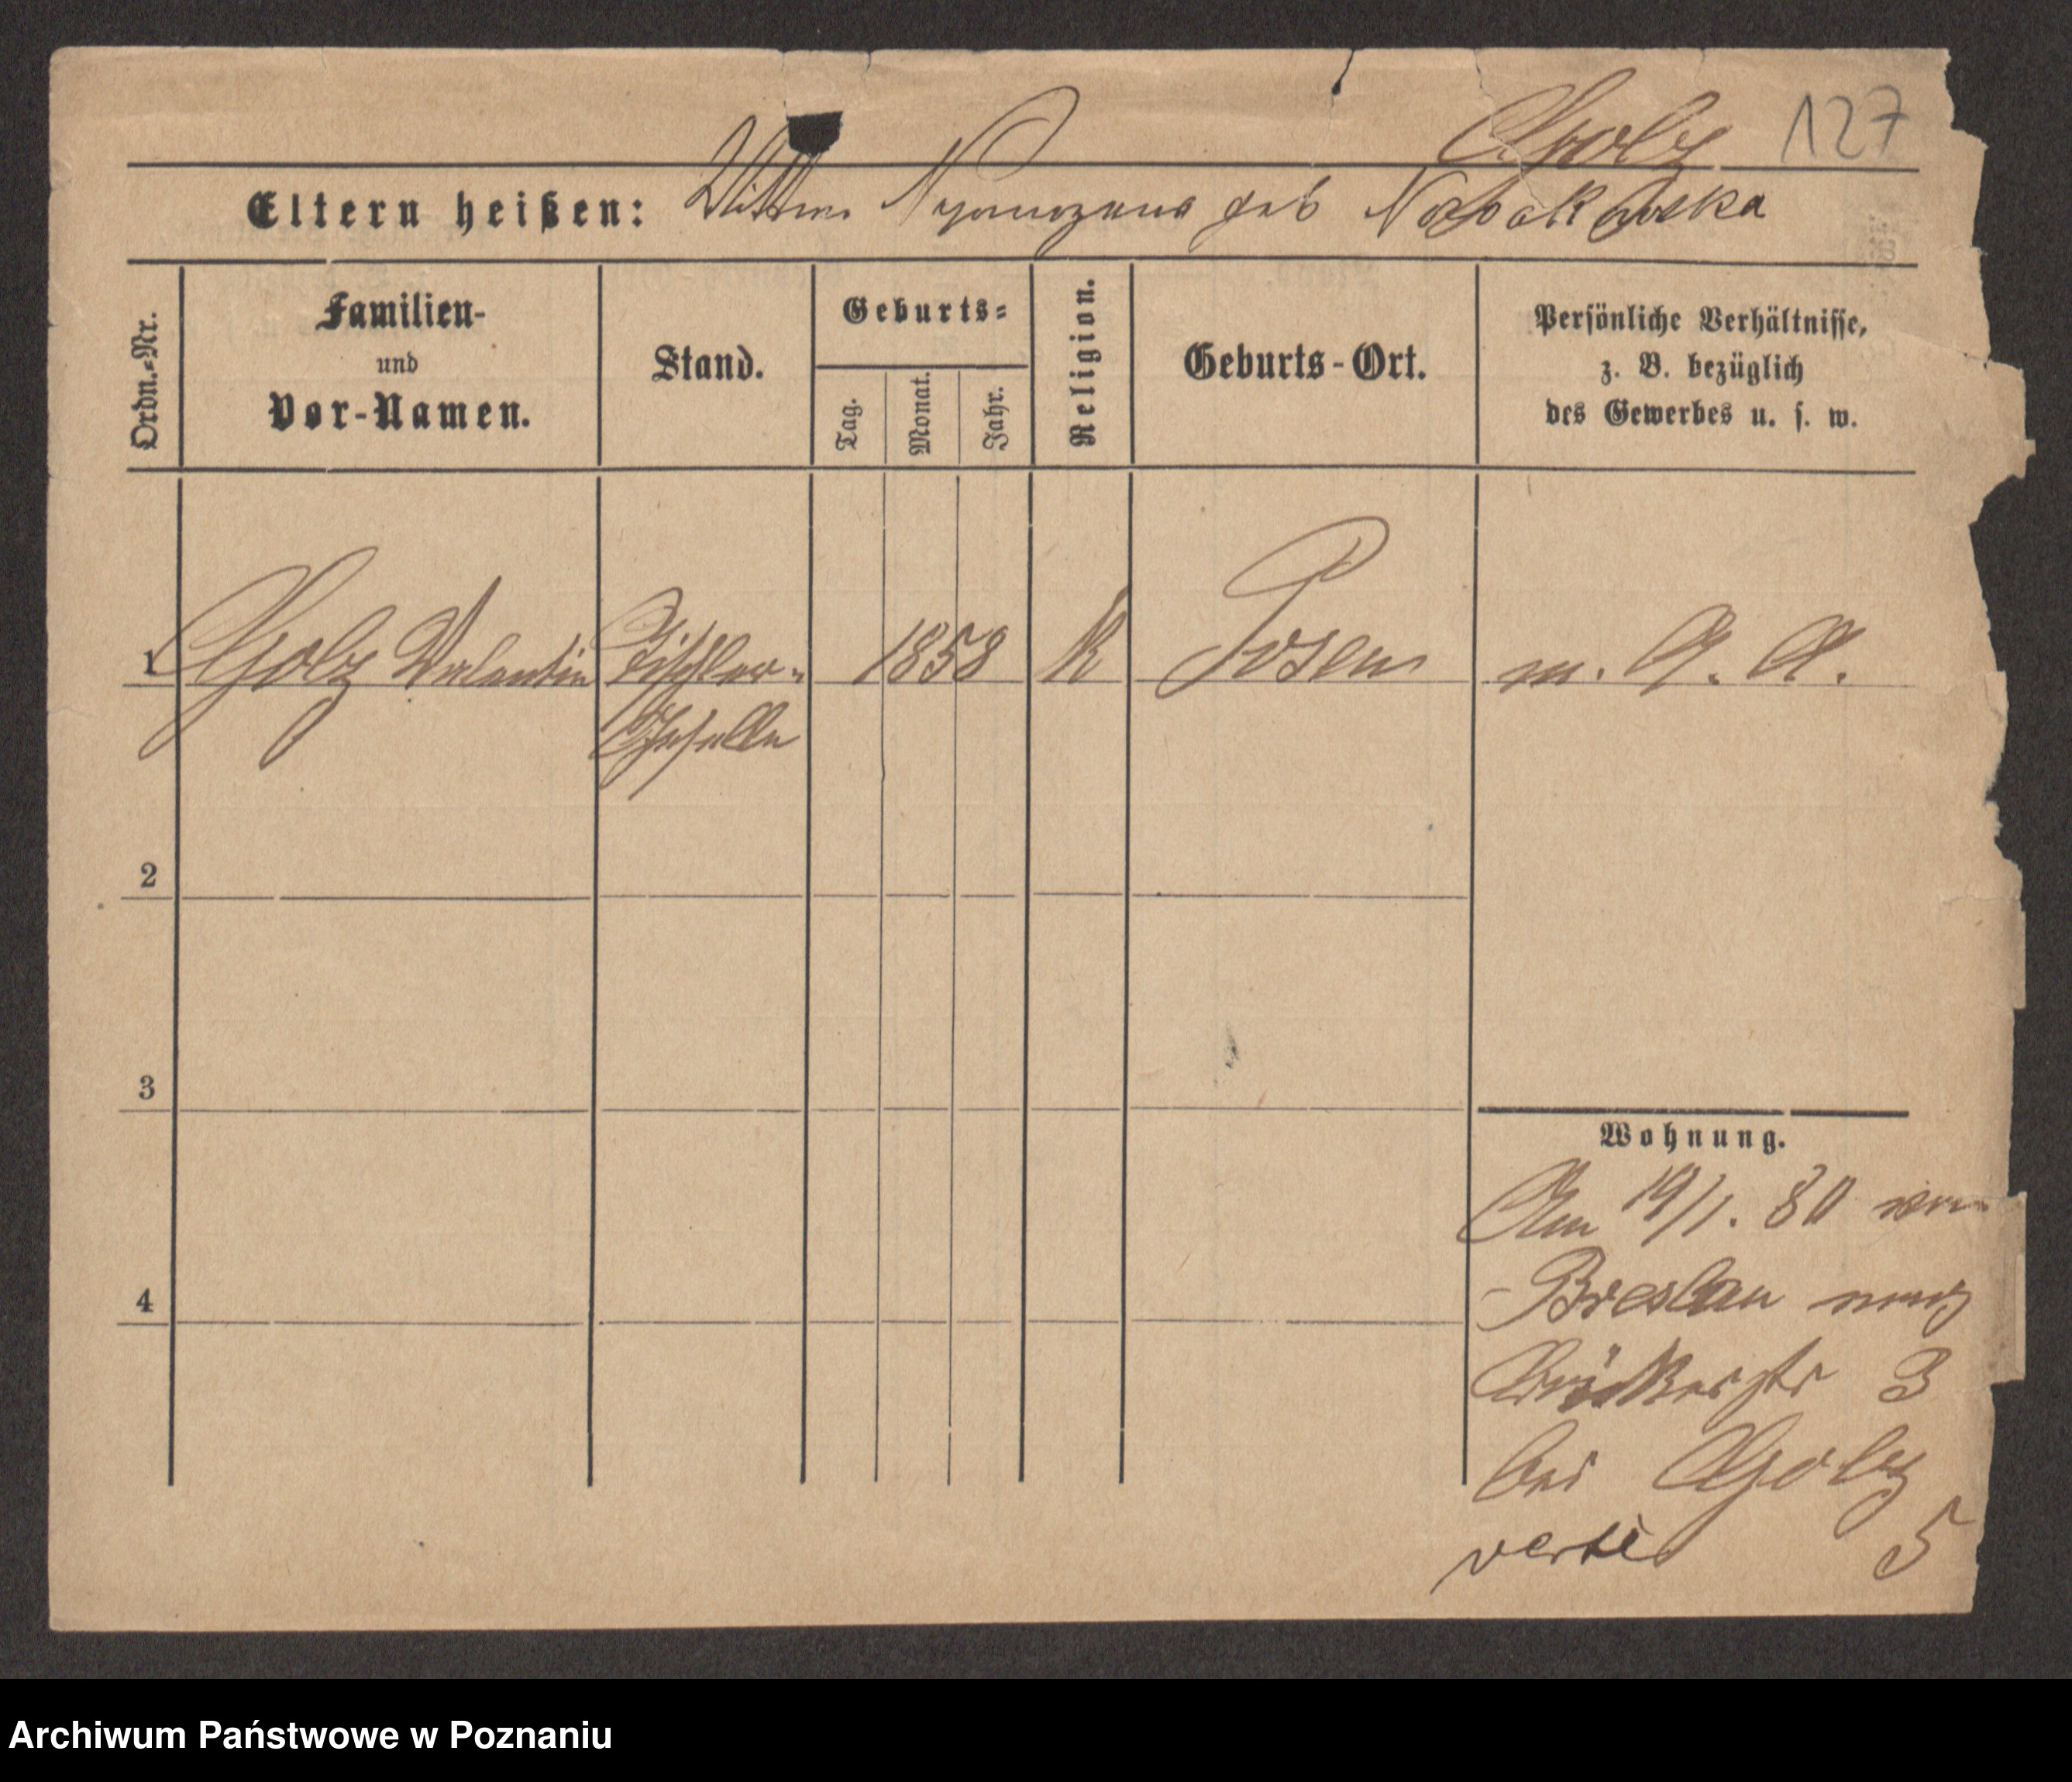 Golz 127
Eltern heißen: geb Nowakowska
Ordn.=Nr.
Familien-
und
Vor-Namen.
Stand.
Geburts=
Tag.
Monat.
Jahr.
Religion.
Geburts-Ort.
Persönliche Verhältnisse,
z. B. bezüglich
des Gewerbes u. s. w.
1 Golz Valentin Tischler- 1858 K Posen m. A. A.
Geselle
2
3
4
Wohnung.
Am 19/1. 80 von
Breslau nach
3
bei Golz
verte 5
Archiwum Państwowe w Poznaniu